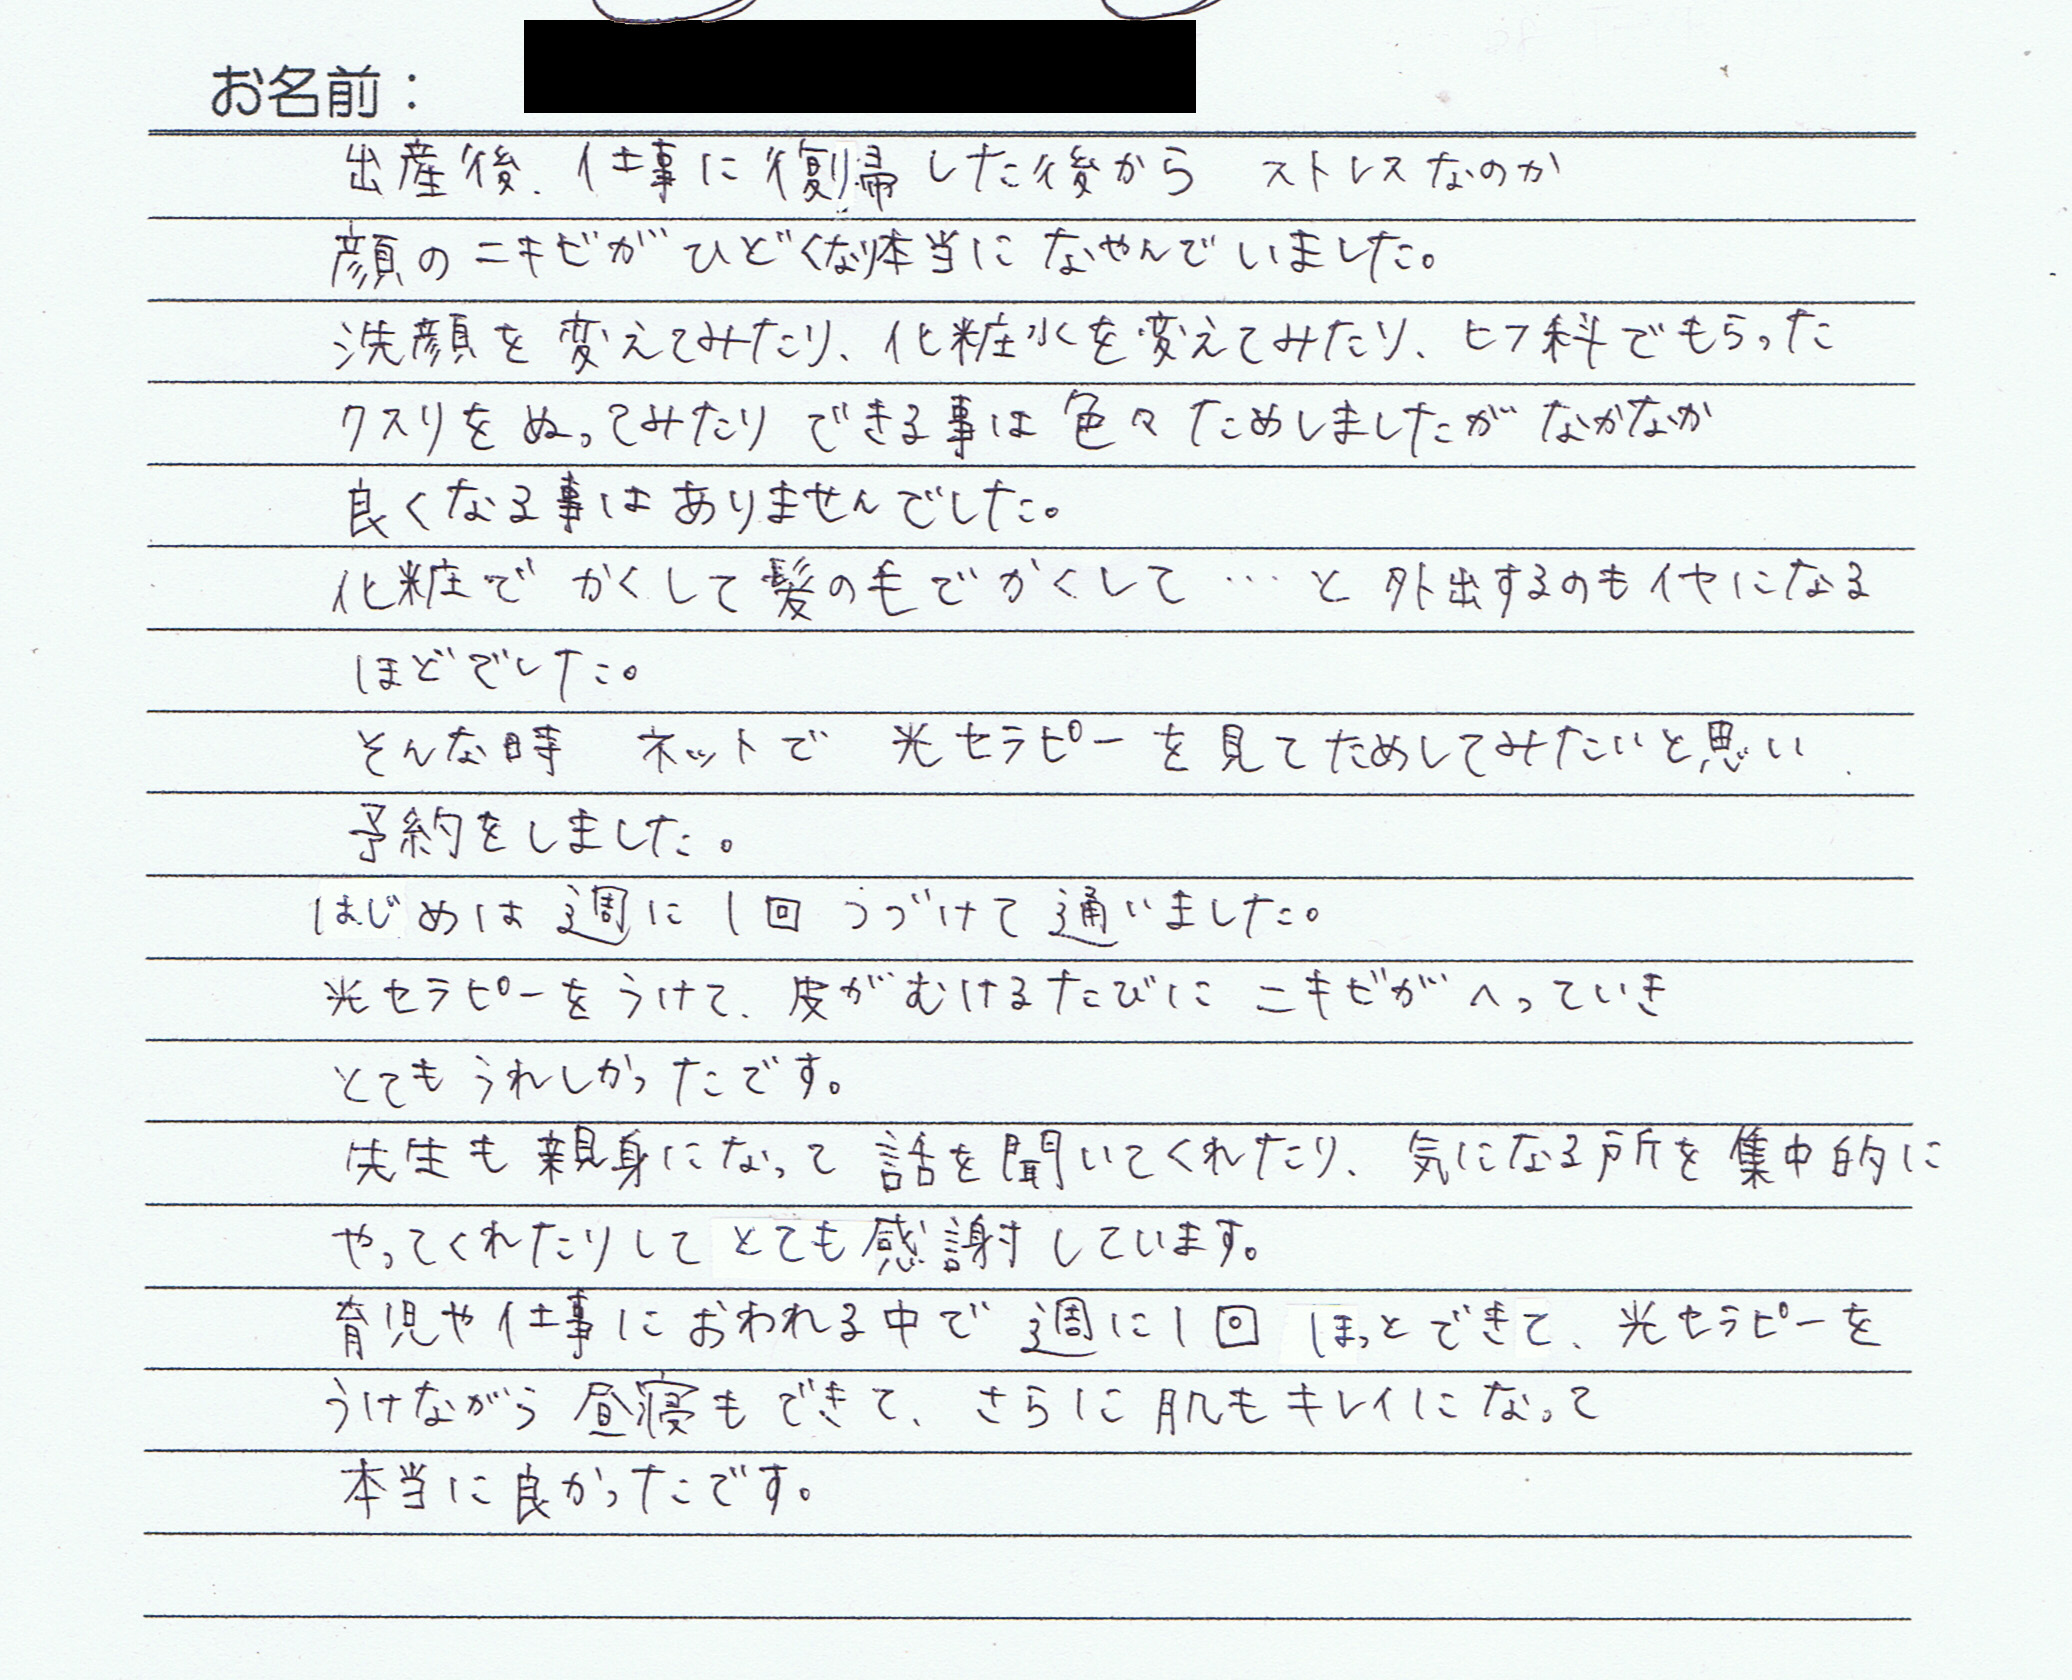 お名前：
出産後、仕事に復帰した後から ストレスなのか
顔のニキビがひどくなり本当になやんでいました。
洗顔を変えてみたり、化粧水を変えてみたり、ヒフ科でもらった
クスリをぬってみたり できる事は色々ためしましたが なかなか
良くなる事はありませんでした。
化粧で かくして髪の毛でかくして…と 外出するのもイヤになる
ほどでした。
そんな時 ネットで 光セラピーを見てためしてみたいと思い、
予約をしました。
はじめは週に1回 つづけて通いました。
光セラピーをうけて、皮がむけるたびに ニキビがへっていき
とてもうれしかったです。
先生も親身になって 話を聞いてくれたり、気になる所を集中的に
やってくれたりして とても感謝しています。
育児や仕事におわれる中で 週に1回 ほっとできて、光セラピーを
うけながら 昼寝もできて、さらに肌もキレイになって
本当に良かったです。